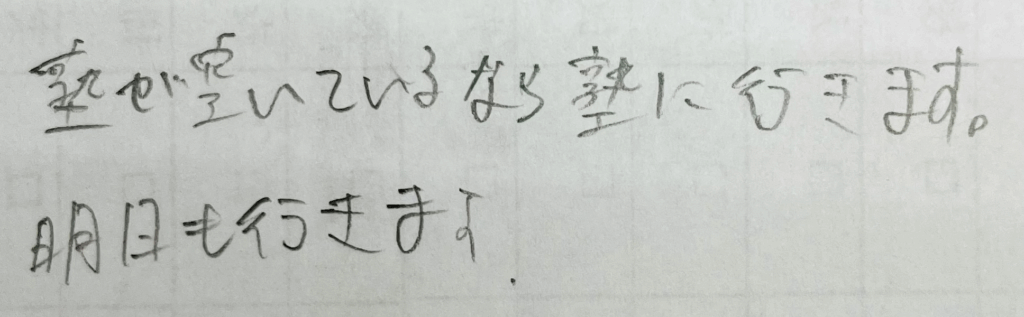 塾が空いているなら塾に行きます。
明日も行きます.